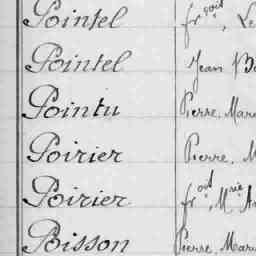 Pointel fr.çoit, Le
Pointel Jean Ba
Pointu Pierre, Mari
Poirier Pierre, M
Poirier fr.çoit, M.rie An
Poisson Pierre, Mari